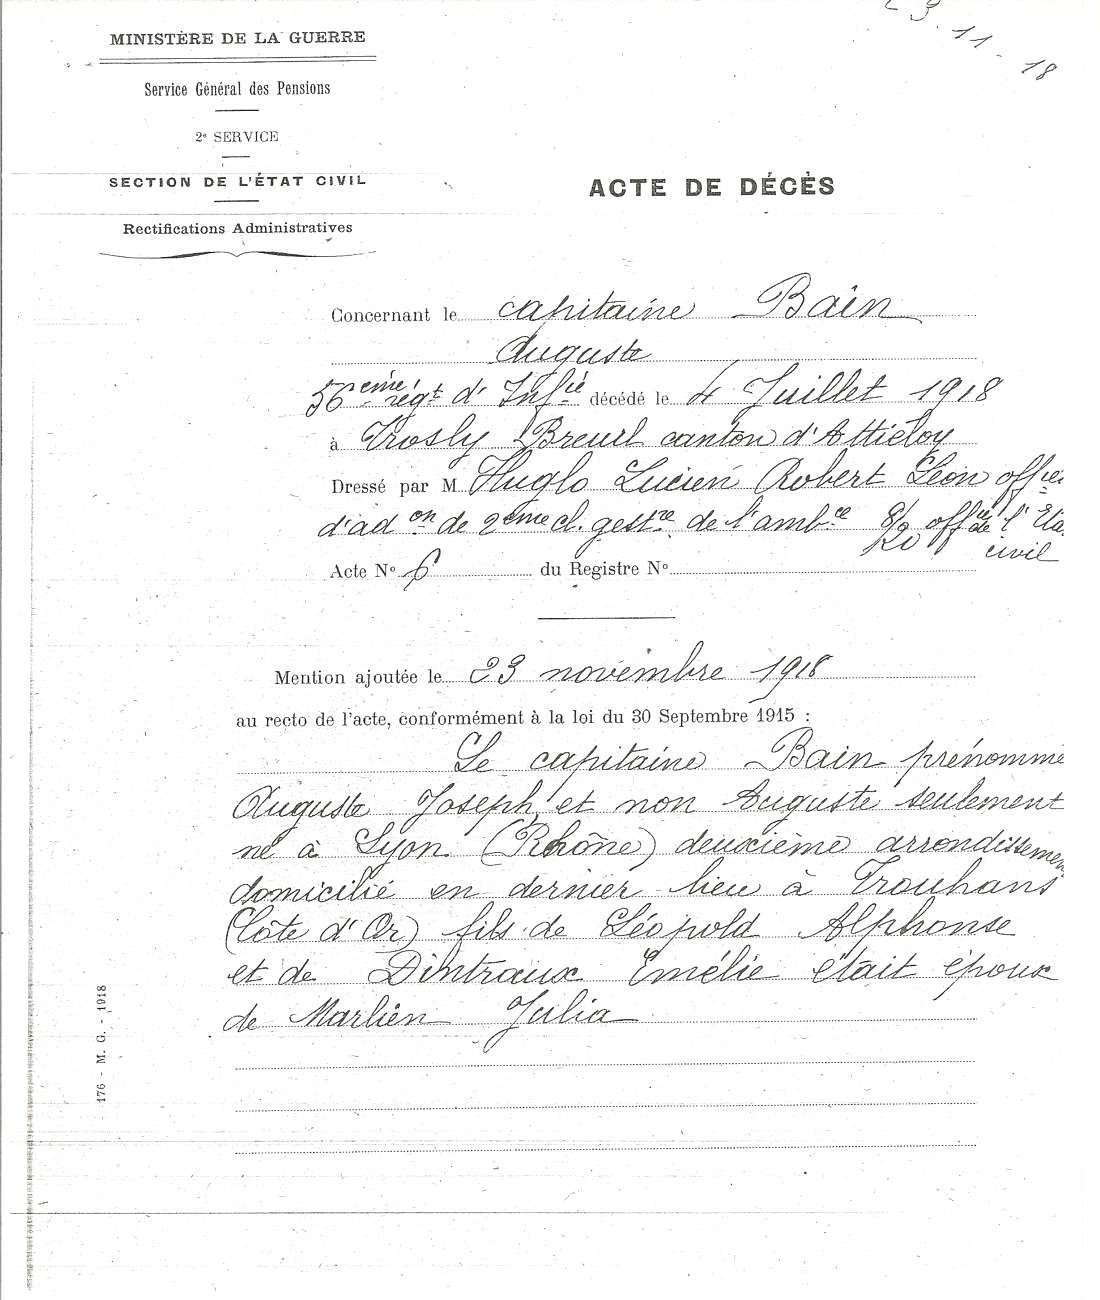 23.11-18
MINISTÈRE DE LA GUERRE
Service Général des Pensions
2e SERVICE
SECTION DE L'ÉTAT CIVIL
Rectifications Administratives
ACTE DE DÉCÈS
Concernant le capitaine Bain
Auguste
56ème régt d'Infie décédé le 4 Juillet 1918
à Trosly Breuil canton d'Attichy
Dressé par M. Huglo Lucien Robert Léon offier
d'adon de 2ème cl. gestre de l'ambce 8/20 offier de l'Etat
civil
Acte No 6 du Registre No
Mention ajoutée le 23 novembre 1918
au recto de l'acte, conformément à la loi du 30 Septembre 1915 :
Le capitaine Bain prénommé
Auguste Joseph et non Auguste seulement
né à Lyon (Rhône) deuxième arrondissement
domicilié en dernier lieu à Trouhans
(Côte d'Or) fils de Léopold Alphonse
et de Dintraux Emélie était époux
de Marlien Julia
176 - M. G. - 1918